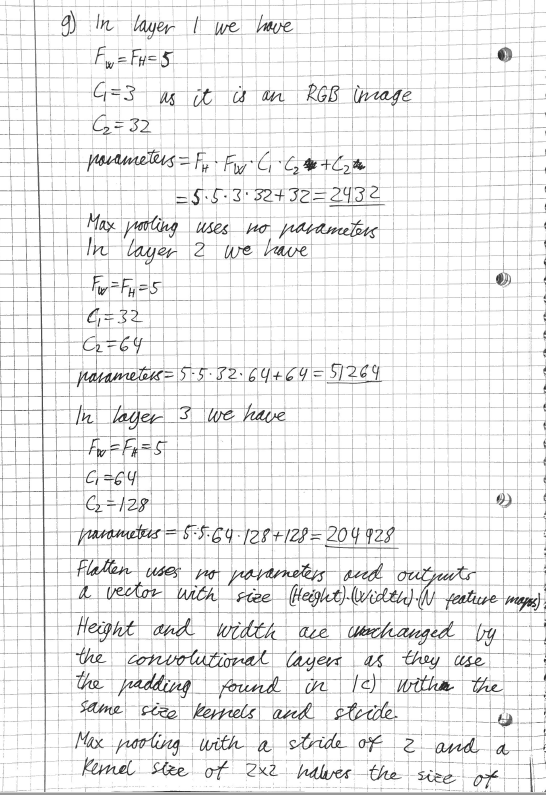 g) In layer 1 we have
F_W = F_H = 5
C_1 = 3 as it is an RGB image
C_2 = 32
parameters = F_H · F_W · C_1 · C_2 + C_2
= 5·5·3·32+32 = 2432
Max pooling uses no parameters
In layer 2 we have
F_W = F_H = 5
C_1 = 32
C_2 = 64
parameters = 5·5·32·64+64 = 51264
In layer 3 we have
F_W = F_H = 5
C_1 = 64
C_2 = 128
parameters = 5·5·64·128+128 = 204 928
Flatten uses no parameters and outputs
a vector with size (Height)·(Width)·(N feature maps).
Height and width are unchanged by
the convolutional layers as they use
the padding found in 1c) with the
same size kernels and stride.
Max pooling with a stride of 2 and a
kernel size of 2x2 halves the size of